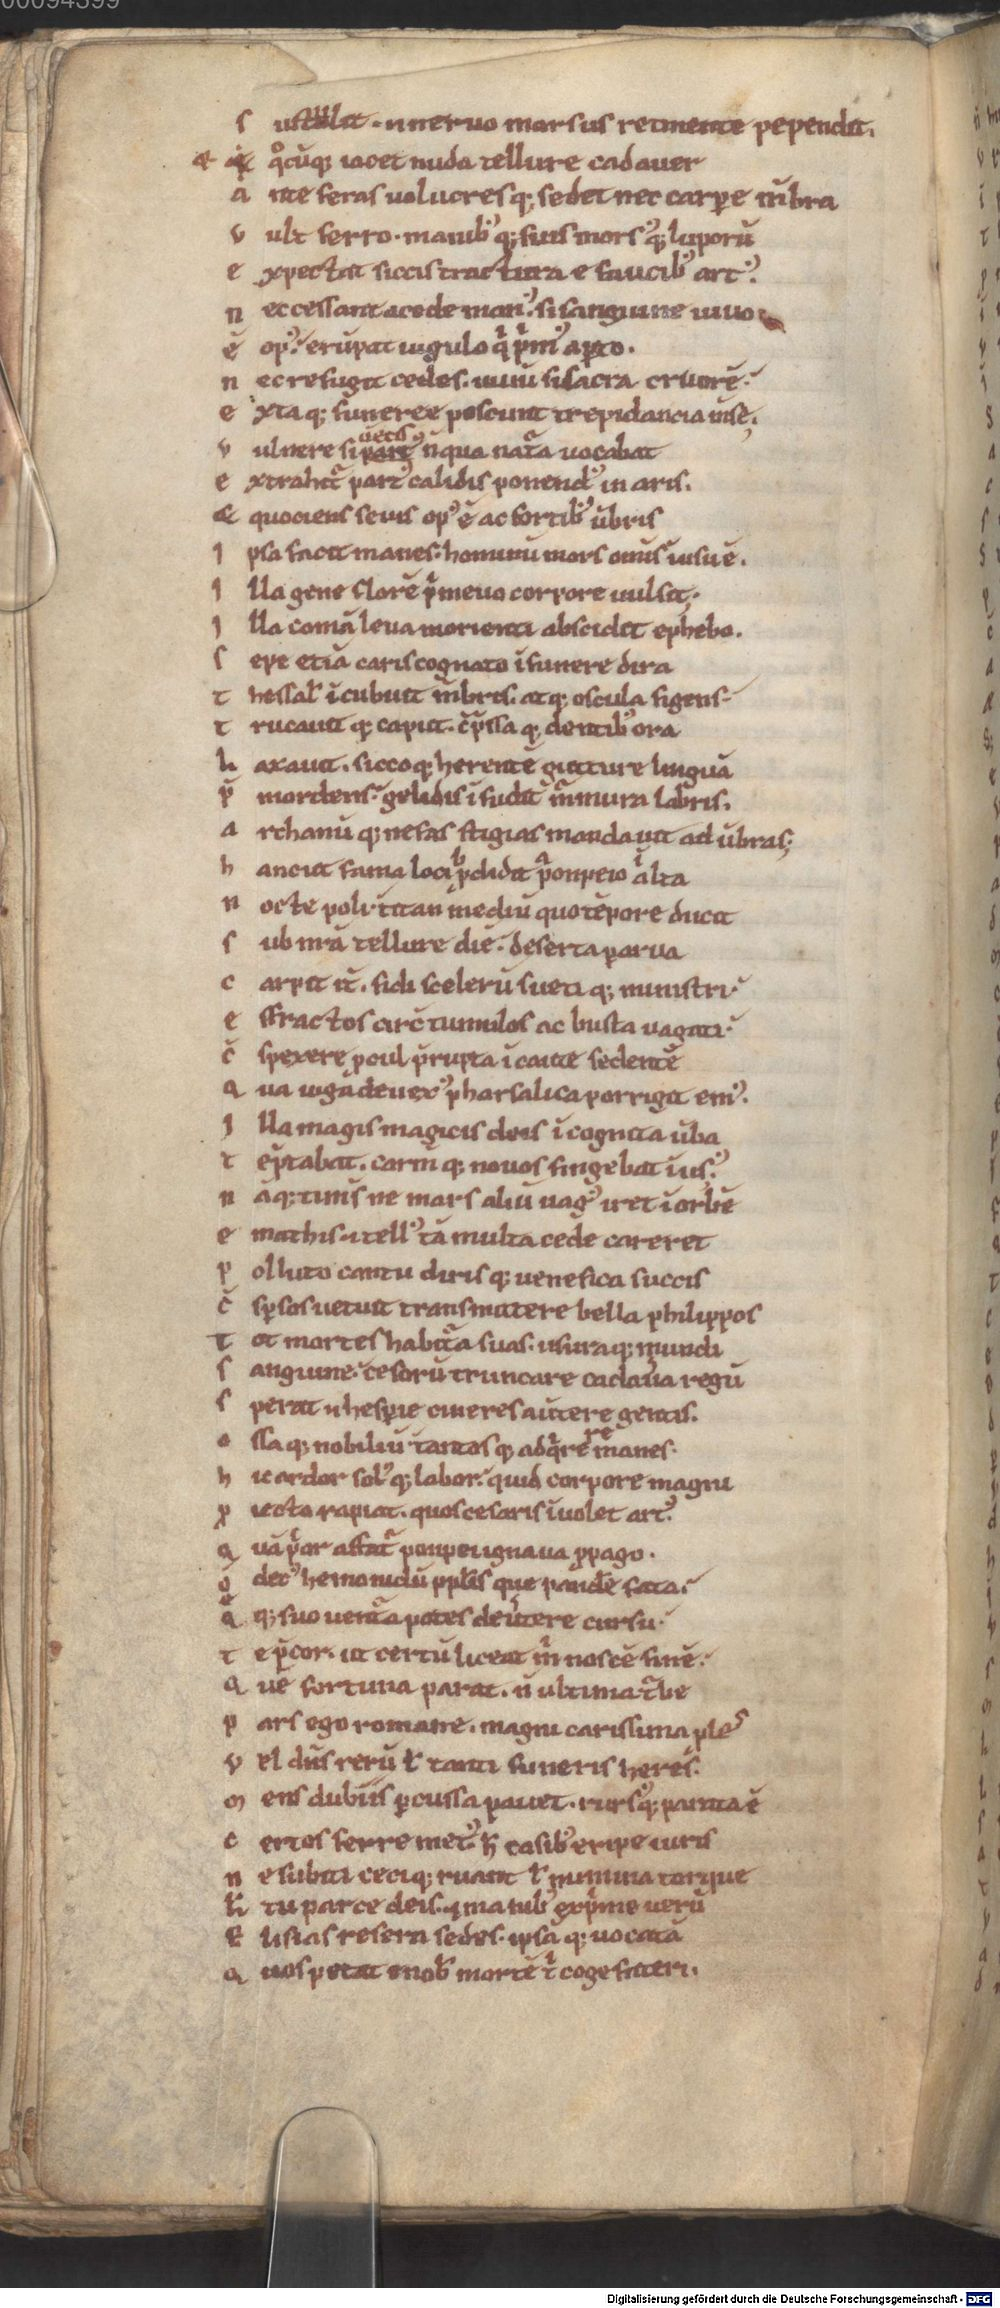 00094399
s ustulit · n neruo morsus retinente pependit.
& q̊cūq; iacet nuda tellure cadauer
a nte feras uolucresq; sedet nec carpe m̄bra
v ult ferro · manib᾽ q; suis mors᾽ q; luporū
e xpectat siccis tractura e faucib᾽ art᾽.
n ec cessant a cede man᾽. si sanguine uiuo
ē op᾽. erūpat iugulo q̄ p̄m᾽ apto.
n ec refugit cedes. uiuū si sacra cruorē.
e xtaq; funeree poscunt trepidancia mēse.
v ulnere si part᾽ n̄ qua nat̄a uocabat
e xtrahit̄ part᾽ calidis ponend᾽ in aris.
& quociens seuis op᾽ ē ac fortib᾽ ūbris
I psa facit manes. hominū mors om̄is ī usu ē.
I lla gene florē p̄meuo corpore uulsit.
I lla comā leua morienti abscidit ephebo.
s epe etiā caris cognato ī funere dira
t hessal᾽ īcubuit m̄bris. atq; oscula figens
t runcauit q; caput. c̄pressa q; dentib᾽ ora
l axauit. siccoq; herentē gutture linguā
p̄ mordens. gelidis īfudit m̄mura labris.
a rchanū q; nefas stigias mandauit ad ūbras;
h anc ut fama loci p̄didit ponpeio alta
n octe poli titan mediū quo tēpore ducit
s ub nr̄a tellure diē. deserta parua
c arpit it̄. fidi scelerū sueti q; ministri
e ffractos circ̄ tumulos ac busta uagati
c̄ spexere pcul p̄rupta ī caute sedentē
q ua iuga deuex᾽ pharsalica porrigit em᾽.
I lla magis magicis deis īcognita ūba
t ēptabat. carm̄ q; nouos fingebat ī us᾽.
n āq; tim̄s ne mars aliū uag᾽ iret ī orbē
e mathis. & tell᾽ tā multa cede careret
p olluto cantu diris q; uenefica succis
c̄ spsos uetuit transmittere bella philippos
T ot mortes habit̄a suas. usuraq; mundi
s anguine. cesorū truncare cadau̅a regū
s perat n hesperie cineres auertere gentis.
o ssa q; nobiliū tantos q; adq̄rere manes.
h ic ardor sol᾽q; labor. quid corpore magni
p iecto rapiat. quos cesaris īuolet art᾽.
q uā p̄or affat̄ ponpei ignaua ppago.
o dec᾽ hemonidū pplis que pandere fata.
q q; suo uent̄a potes deutere cursu.
t e p̄cor. ut certū liceat m̄ noscē finē.
q uē fortuna parat. n̄ ultima t̄be
p ars ego romane. magni carissima ples
v el dn̄s rerū ł tanti funeris heres.
m ens dubiis pcussa pauet. rurs᾽q; parata ē
c ertos ferre met᾽. h̄ casib᾽ eripe iuris
n e subiti ceciq; ruant ł numina torque
ł tu parce deis. & manib᾽ exp̄me uerū
e lisias resera sedes. ipsa q; uocatā
q uos petat e nob᾽ mortē m̄ coge fateri.
Digitalisierung gefördert durch die Deutsche Forschungsgemeinschaft - DFG